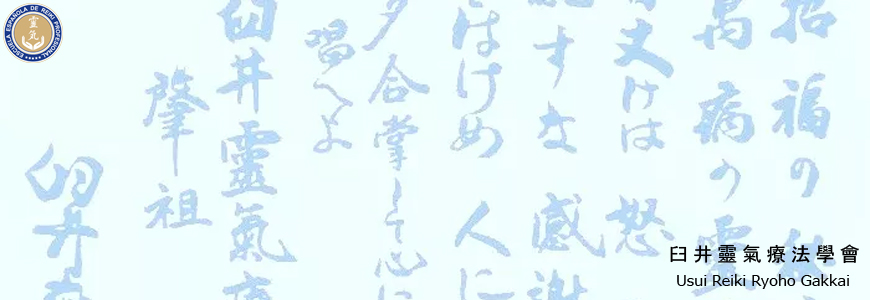 ESCUELA ESPAÑOLA DE REIKI PROFESIONAL
靈氣
招福の
萬病の靈
丈けは 怒
すな 感謝
はけめ 人に
夕 合掌して心に
唱へよ
臼井靈氣療
肇祖
臼井
臼井靈氣療法學會
Usui Reiki Ryoho Gakkai